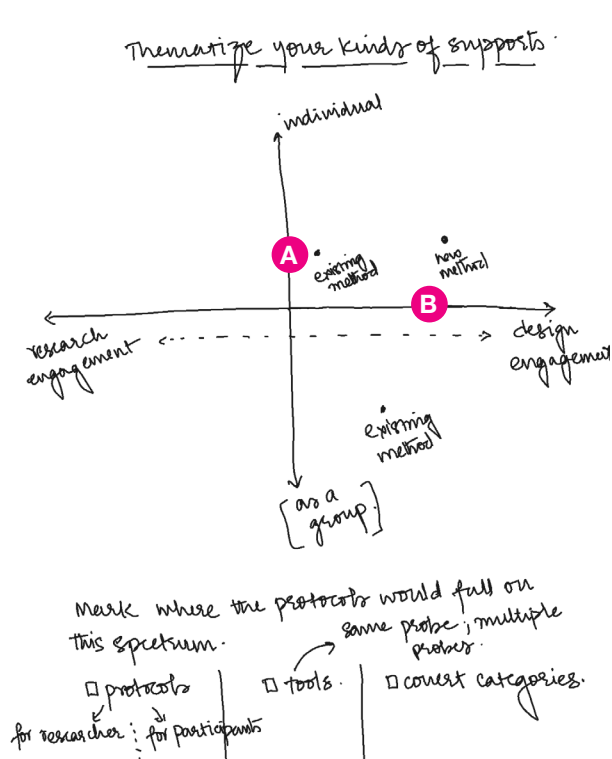 Thematize your kinds of supports.
individual
A
existing
method
new
method
B
research
engagement
design
engagement
existing
method
[as a
group]
Mark where the protocols would fall on
this spectrum.
same probe; multiple
probes.
protocols
tools.
covert categories.
for researcher
for participants